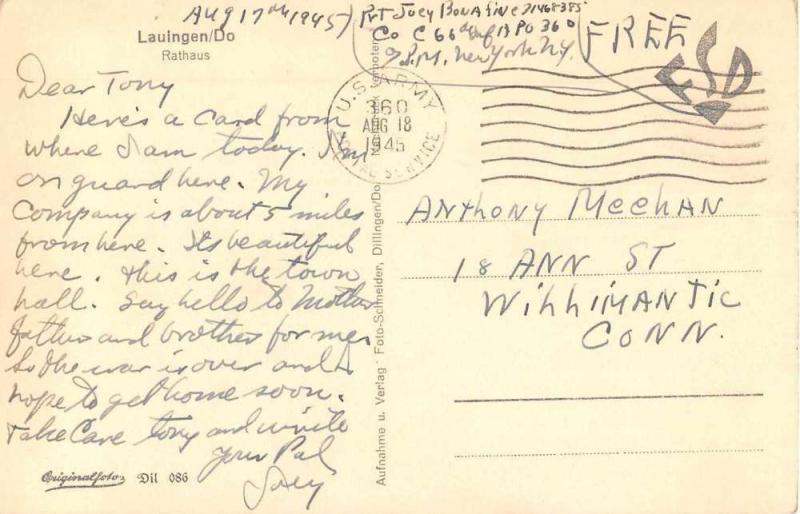 Lauingen/Do
Rathaus
Aug 17th 1945
Pvt Joey Bonafine
Co C 66th Inf APO 360
P.M. New York N.Y.
FREE
U.S. ARMY
360
AUG 18
1945
POSTAL SERVICE
Dear Tony
Here's a card from
where I am today. I'm
on guard here. My
company is about 5 miles
from here. Its beautiful
here. This is the town
hall. Say hello to Mother
father and brother for me.
So the war is over and I
hope to get home soon.
Take Care Tony and write
Your Pal
Joey
Anthony Meehan
18 ANN ST
Willimantic
CONN.
Aufnahme u. Verlag: Foto-Schneider, Dillingen/Do.
Originalfoto Dil 086